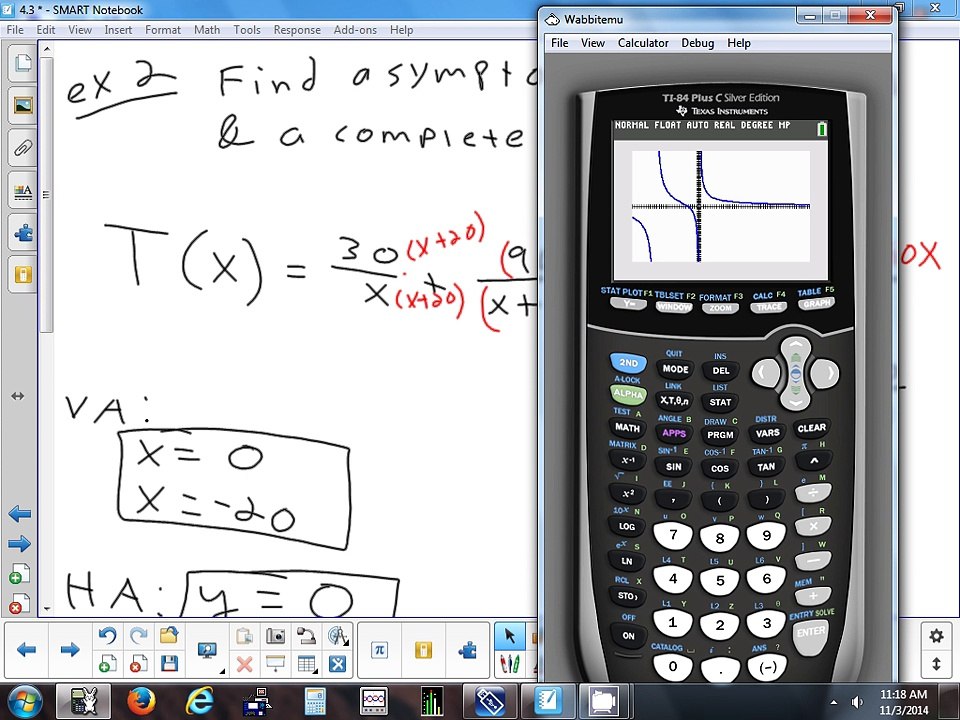 4.3 * - SMART Notebook
File Edit View Insert Format Math Tools Response Add-ons Help
ex 2 Find asympto
& a complete
T(x) = 30 (x+20) + (9
x (x+20) (x+
0x
VA:
x = 0
x = -20
HA: y = 0
Wabbitemu
File View Calculator Debug Help
TI-84 Plus C Silver Edition
TEXAS INSTRUMENTS
NORMAL FLOAT AUTO REAL DEGREE MP
STAT PLOT F1 TBLSET F2 FORMAT F3 CALC F4 TABLE F5
Y= WINDOW ZOOM TRACE GRAPH
QUIT INS
2ND MODE DEL
A-LOCK LINK LIST
ALPHA X,T,θ,n STAT
TEST A ANGLE B DRAW C DISTR
MATH APPS PRGM VARS CLEAR
MATRIX D SIN⁻¹ E COS⁻¹ F TAN⁻¹ G π H
x⁻¹ SIN COS TAN ^
√ I EE J { K } L e M
x² , ( ) ÷
10ˣ N u O v P w Q [ R
LOG 7 8 9 ×
eˣ S L4 T L5 U L6 V ] W
LN 4 5 6 −
RCL X L1 Y L2 Z L3 θ MEM "
STO› 1 2 3 +
OFF CATALOG ⎵ i : ANS ? ENTRY SOLVE
ON 0 . (-) ENTER
11:18 AM
11/3/2014